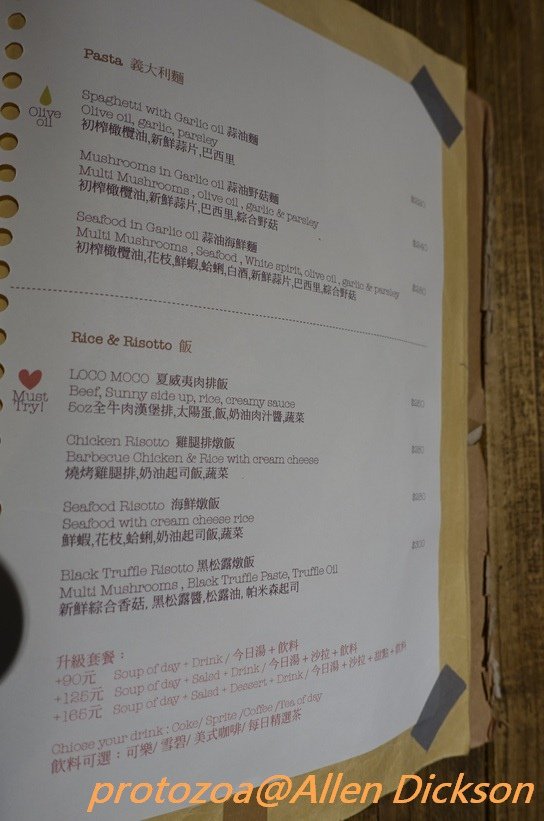 Pasta 義大利麵
Olive
oil
Spaghetti with Garlic oil 蒜油麵
Olive oil, garlic, parsley
初榨橄欖油,新鮮蒜片,巴西里
Mushrooms in Garlic oil 蒜油野菇麵
Multi Mushrooms , olive oil , garlic & parsley
初榨橄欖油,新鮮蒜片,巴西里,綜合野菇
Seafood in Garlic oil 蒜油海鮮麵
Multi Mushrooms , Seafood , White spirit, olive oil , garlic & parsley
初榨橄欖油,花枝,鮮蝦,蛤蜊,白酒,新鮮蒜片,巴西里,綜合野菇
Rice & Risotto 飯
Must
Try!
LOCO MOCO 夏威夷肉排飯
Beef, Sunny side up, rice, creamy sauce
5oz全牛肉漢堡排,太陽蛋,飯,奶油肉汁醬,蔬菜
Chicken Risotto 雞腿排燉飯
Barbecue Chicken & Rice with cream cheese
燒烤雞腿排,奶油起司飯,蔬菜
Seafood Risotto 海鮮燉飯
Seafood with cream cheese rice
鮮蝦,花枝,蛤蜊,奶油起司飯,蔬菜
$300
Black Truffle Risotto 黑松露燉飯
Multi Mushrooms , Black Truffle Paste, Truffle Oil
新鮮綜合香菇, 黑松露醬,松露油, 帕米森起司
升級套餐：
+90元 Soup of day + Drink / 今日湯 + 飲料
+125元 Soup of day + Salad + Drink / 今日湯 + 沙拉 + 飲料
+165元 Soup of day + Salad + Dessert + Drink / 今日湯 + 沙拉 + 甜點 + 飲
Chiose your drink : Coke/ Sprite /Coffee /Tea of day
飲料可選：可樂/ 雪碧/ 美式咖啡/ 每日精選茶
protozoa@Allen Dickson